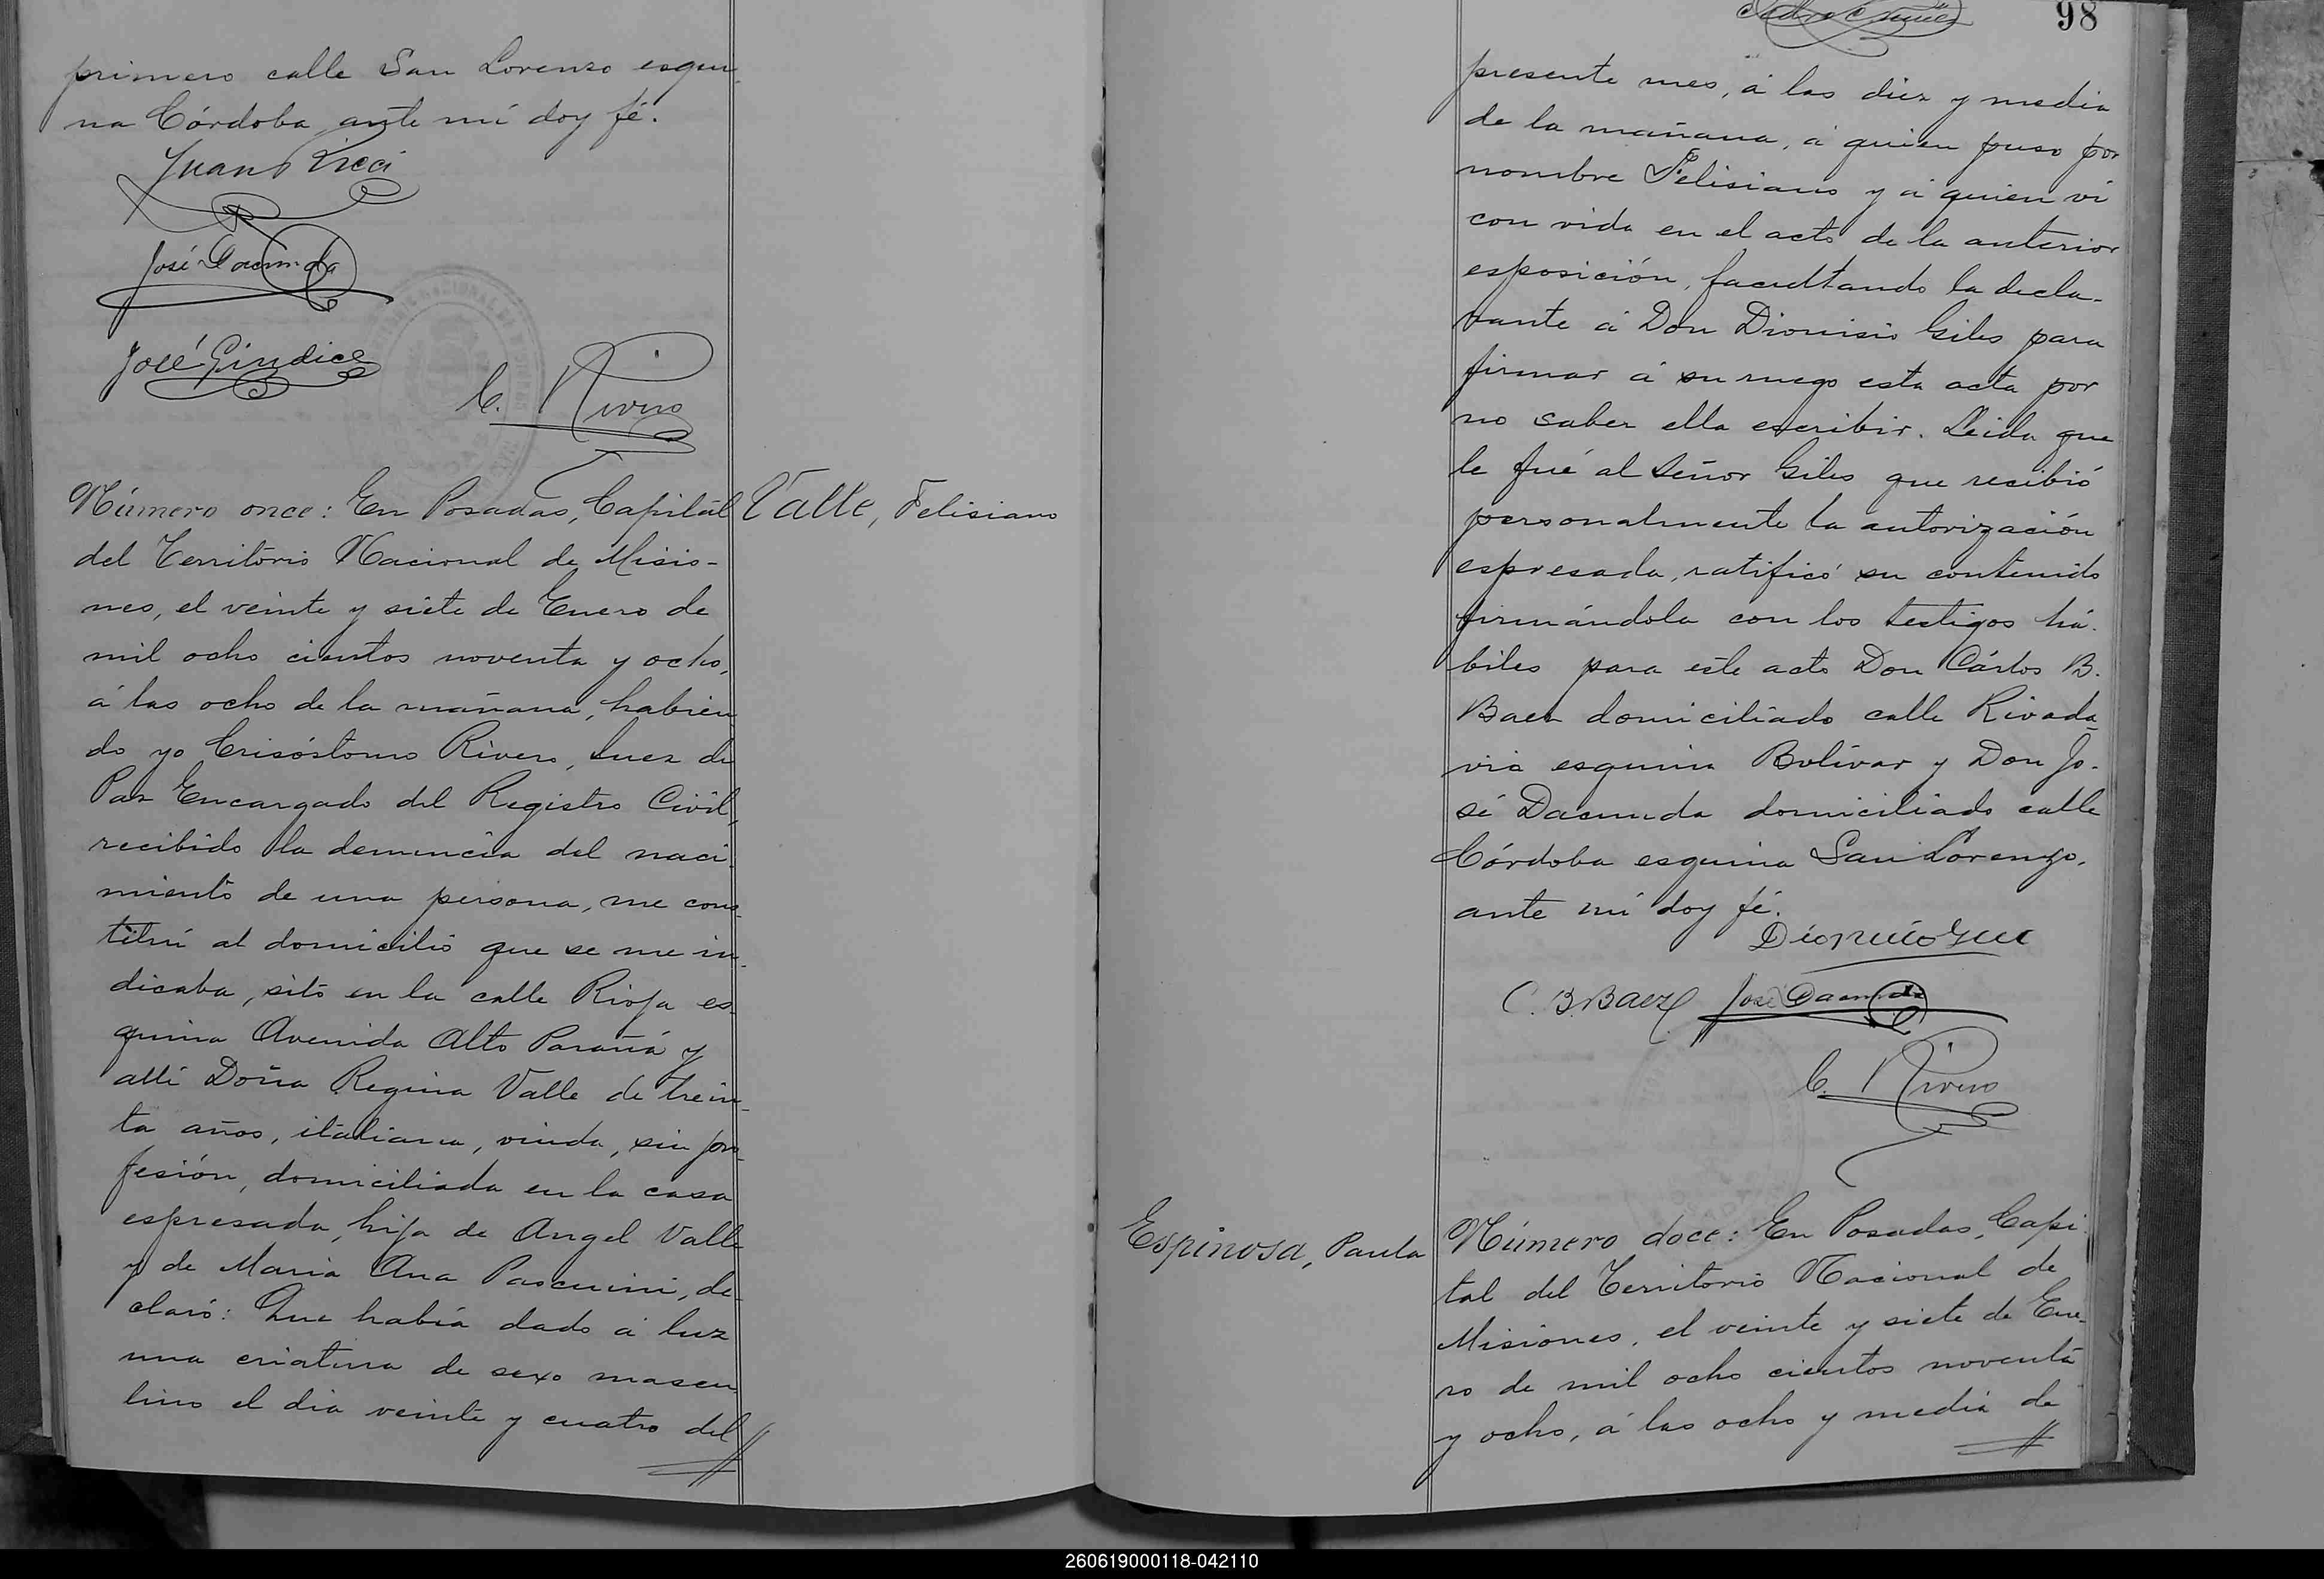 primero calle San Lorenzo esqui
na Córdoba ante mí doy fé.
Juan Ricci
José Dacunda
José Giudice
C. Rivero
Número once: En Posadas, Capital
Valle, Felisiano
del Territorio Nacional de Misio-
nes, el veinte y siete de Enero de
mil ocho cientos noventa y ocho,
á las ocho de la mañana, habien
do yo Crisóstomo Rivero, Juez de
Paz Encargado del Registro Civil,
recibido la denuncia del naci-
miento de una persona, me cons-
tituí al domicilio que se me in-
dicaba, sito en la calle Rioja es-
quina Avenida Alto Paraná y
allí Doña Regina Valle de trein-
ta años, italiana, viuda, sin pro-
fesión, domiciliada en la casa
espresada, hija de Angel Valle
y de Maria Ana Pascuini, de-
claró: Que había dado á luz
una criatura de sexo mascu
lino el dia veinte y cuatro del
98
presente mes, á las diez y media
de la mañana, á quien puso por
nombre Felisiano y á quien ví
con vida en el acto de la anterior
esposición, facultando la decla-
rante á Don Dionisio Giles para
firmar á su ruego esta acta por
no saber ella escribir. Leida que
le fué al Señor Giles que recibió
personalmente la autorización
espresada, ratificó su contenido
firmándola con los testigos há-
biles para este acto Don Cárlos B.
Baez domiciliado calle Rivada-
via esquina Bolívar y Don Jo-
sé Dacunda domiciliado calle
Córdoba esquina San Lorenzo,
ante mí doy fé.
C. B. Baez José Dacunda
C. Rivero
Espinosa, Paula
Número doce: En Posadas, Capi-
tal del Territorio Nacional de
Misiones, el veinte y siete de Ene-
ro de mil ocho cientos noventa
y ocho, á las ocho y media de
260619000118-042110